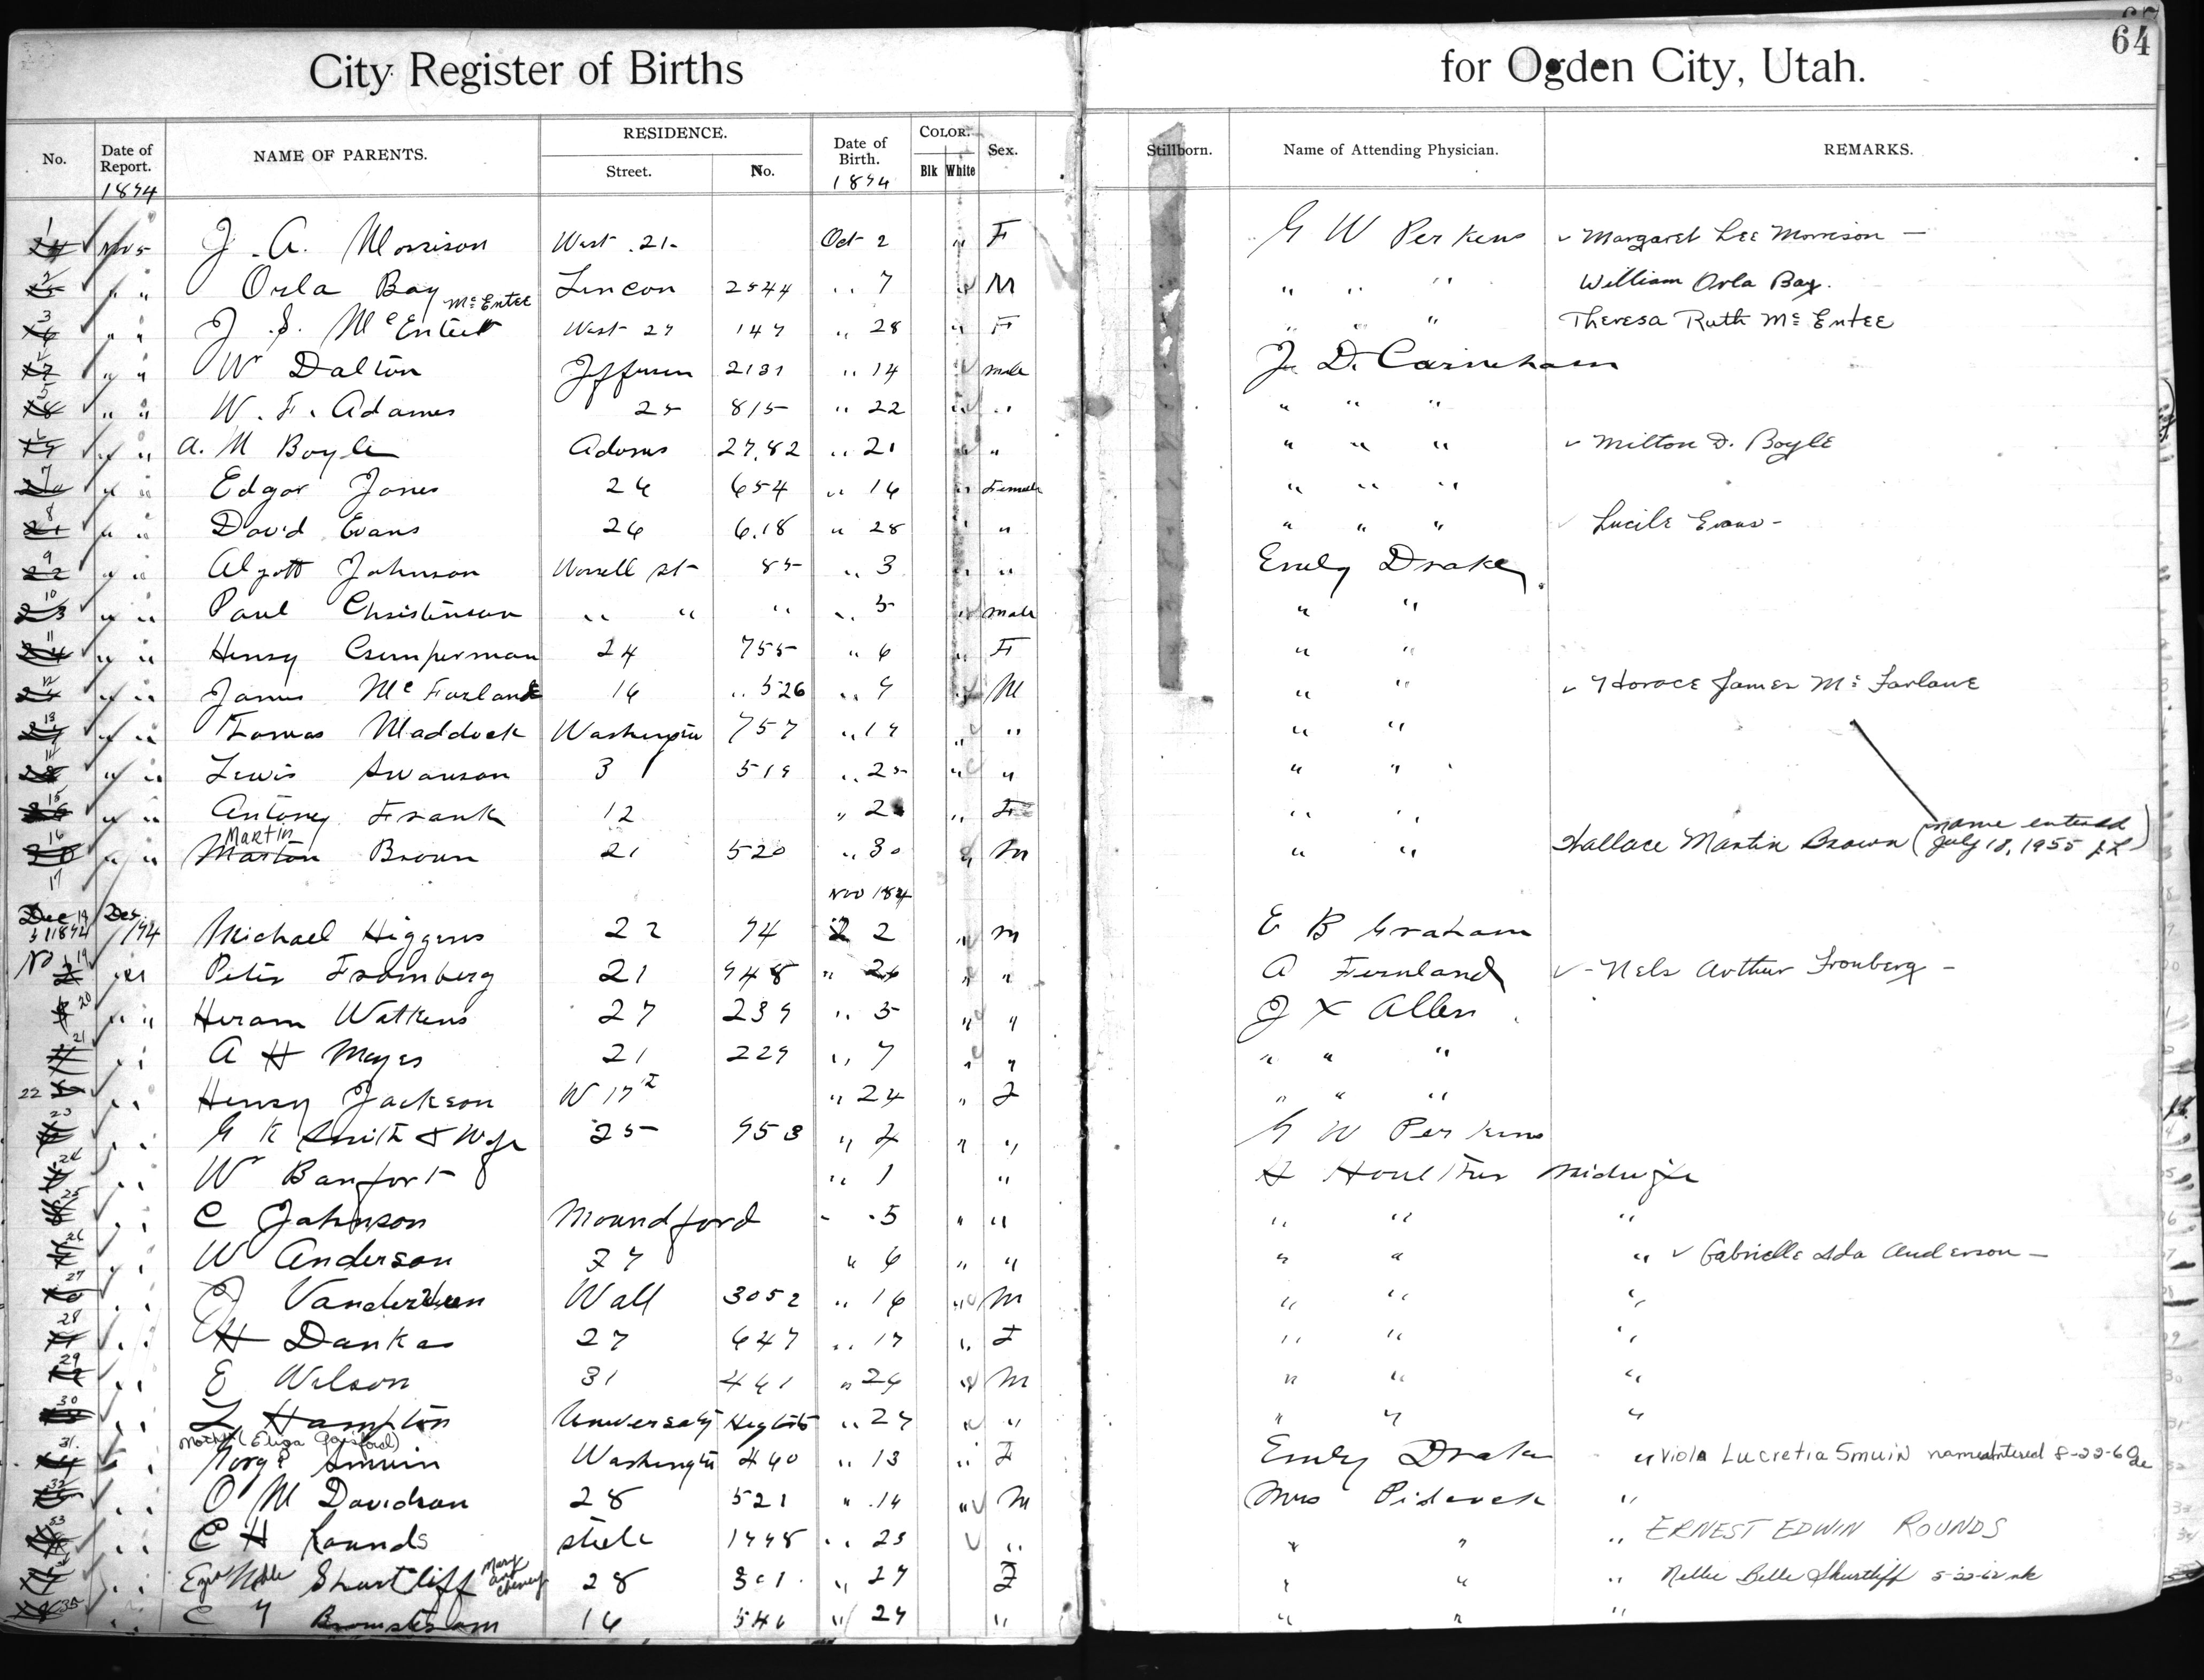 64
City Register of Births for Ogden City, Utah.
No. Date of Report. NAME OF PARENTS. RESIDENCE. Street. No. Date of Birth. COLOR. Blk White Sex. Stillborn. Name of Attending Physician. REMARKS.
1894 1894
1 Nov 5 J. A. Morrison West 21 Oct 2 " F G W Perkens ✓ Margaret Lee Morrison —
2 " " Orla Bay Lincon 2544 " 7 " M " " " William Orla Bay.
3 " " J. S. McEntee McEntee West 27 147 " 28 " F " " " Theresa Ruth McEntee
4 " " W Dalton Jefferson 2131 " 14 male J. D. Carnahan
5 " " W. F. Adames 25 815 " 22 " " " " "
6 " " A. M Boyle Adams 27.82 " 21 " " " " ✓ Milton D. Boyle
7 " " Edgar Jones 26 654 " 16 " Female " " "
8 " " David Evans 26 6.18 " 28 " " " " " ✓ Lucile Evans -
9 " " Algott Johnson 85 " 3 " " Emely Drake
10 " " Paul Christenson " " " " 5 " male " "
11 " " Henry 24 755 " 6 " F " "
12 " " James McFarland 16 " 526 " 9 M " " ✓ Horace James McFarlane
13 " " Tomas Maddock Washington 757 " 17 " " " "
14 " " Lewis Swanson 3 519 " 25 " " " "
15 " " Antony Frank 12 " 2 " F " "
16 " " Marton Martin Brown 21 520 " 30 M " " Wallace Martin Brown (name entered July 18, 1955 JL)
17 Nov 1894
Dec 3 1894 Dec /94 Michael Higgens 22 94 2 " M E B Graham
19 Peter Fromberg 21 948 " 26 " " A Fernland ✓ - Nels Arthur Fronberg -
20 " " Hiram Watkins 27 239 " 5 " " J X Allen
21 " " A H Meyes 21 229 " 7 " " " " "
22 " " Henry Jackson W 17 " 24 " F " " "
23 " " G K Smith & Wife 25 953 " 4 " " G W Perkens
24 " " W Banfort " 1 " H Houlther Midwife
25 " " C Johnson Moundford " 5 " " " " "
26 " " W Anderson 27 " 6 " " " " " ✓ Gabrielle Ida Anderson —
27 " " J Vanderveen Wall 3052 " 16 " M " " "
28 " " H Dankas 27 647 " 17 " F " " "
29 " " E Wilson 31 441 " 24 " M " " "
30 " " L Hampton University Heights " 27 " " " " "
Mother (Eliza Gaisford)
31. " " Smuin Washington 440 " 13 " F Emely Drake " Viola Lucretia Smuin name entered 8-22-60
32 " " O M Davidson 28 521 " 14 " M Mrs Pidcock "
33 " " C H Rounds Steele 1448 " 23 " " " " ERNEST EDWIN ROUNDS
" " Ezra Noble Shurtliff Mary Ann Cheney 28 301. " 27 F " " " Nellie Belle Shurtliff 5-22-62
35 " " C 16 541 " 27 " " " "